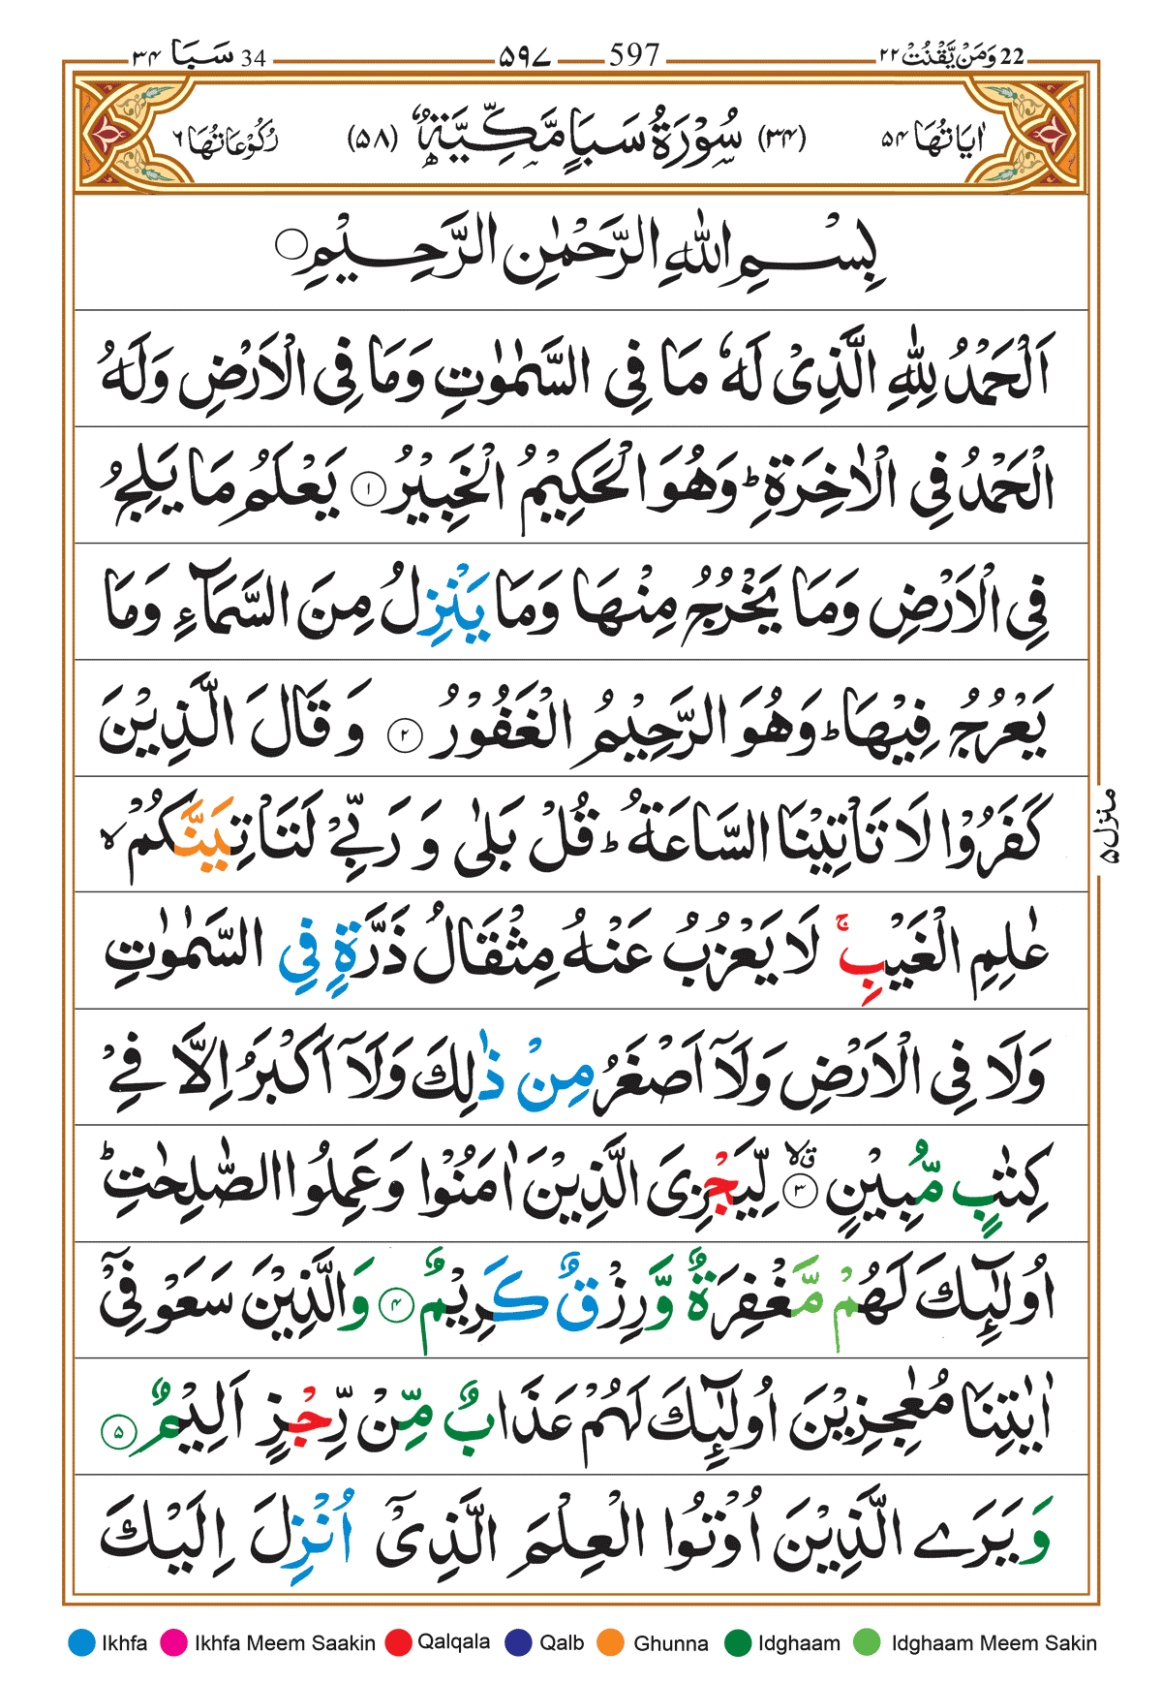 سَبَا ٣٤ 34 ۵۹۷ 597 وَمَنْ يَّقْنُتْ ٢٢ 22
اٰيَاتُهَا ۵۴ (۳۴) سُوْرَةُ سَبَاٍ مَّكِّيَّةٌ (۵۸) رُكُوْعَاتُهَا ۶
بِسْمِ اللّٰهِ الرَّحْمٰنِ الرَّحِيْمِ ۝
اَلْحَمْدُ لِلّٰهِ الَّذِىْ لَهٗ مَا فِى السَّمٰوٰتِ وَمَا فِى الْاَرْضِ وَلَهُ
الْحَمْدُ فِى الْاٰخِرَةِ ؕ وَهُوَ الْحَكِيْمُ الْخَبِيْرُ ۝۱ يَعْلَمُ مَا يَلِجُ
فِى الْاَرْضِ وَمَا يَخْرُجُ مِنْهَا وَمَا يَنْزِلُ مِنَ السَّمَآءِ وَمَا
يَعْرُجُ فِيْهَا ؕ وَهُوَ الرَّحِيْمُ الْغَفُوْرُ ۝۲ وَقَالَ الَّذِيْنَ
كَفَرُوْا لَا تَاْتِيْنَا السَّاعَةُ ؕ قُلْ بَلٰى وَرَبِّىْ لَتَاْتِيَنَّكُمْ ۙ
عٰلِمِ الْغَيْبِ ۚ لَا يَعْزُبُ عَنْهُ مِثْقَالُ ذَرَّةٍ فِى السَّمٰوٰتِ
وَلَا فِى الْاَرْضِ وَلَاۤ اَصْغَرُ مِنْ ذٰلِكَ وَلَاۤ اَكْبَرُ اِلَّا فِىْ
كِتٰبٍ مُّبِيْنٍ ۝۳ قلا لِّيَجْزِىَ الَّذِيْنَ اٰمَنُوْا وَعَمِلُوا الصّٰلِحٰتِ ؕ
اُولٰٓئِكَ لَهُمْ مَّغْفِرَةٌ وَّرِزْقٌ كَرِيْمٌ ۝۴ وَالَّذِيْنَ سَعَوْ فِىْۤ
اٰيٰتِنَا مُعٰجِزِيْنَ اُولٰٓئِكَ لَهُمْ عَذَابٌ مِّنْ رِّجْزٍ اَلِيْمٌ ۝۵
وَيَرَى الَّذِيْنَ اُوْتُوا الْعِلْمَ الَّذِىْۤ اُنْزِلَ اِلَيْكَ
منزل ۵
Ikhfa Ikhfa Meem Saakin Qalqala Qalb Ghunna Idghaam Idghaam Meem Sakin